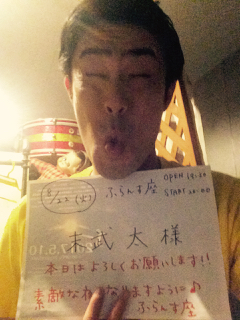 8/22 (火) ふらんす座 OPEN 19:30
START 20:00
末武 太 様
本日はよろしくお願いします!!
素敵な夜になりますように♪
ふらんす座